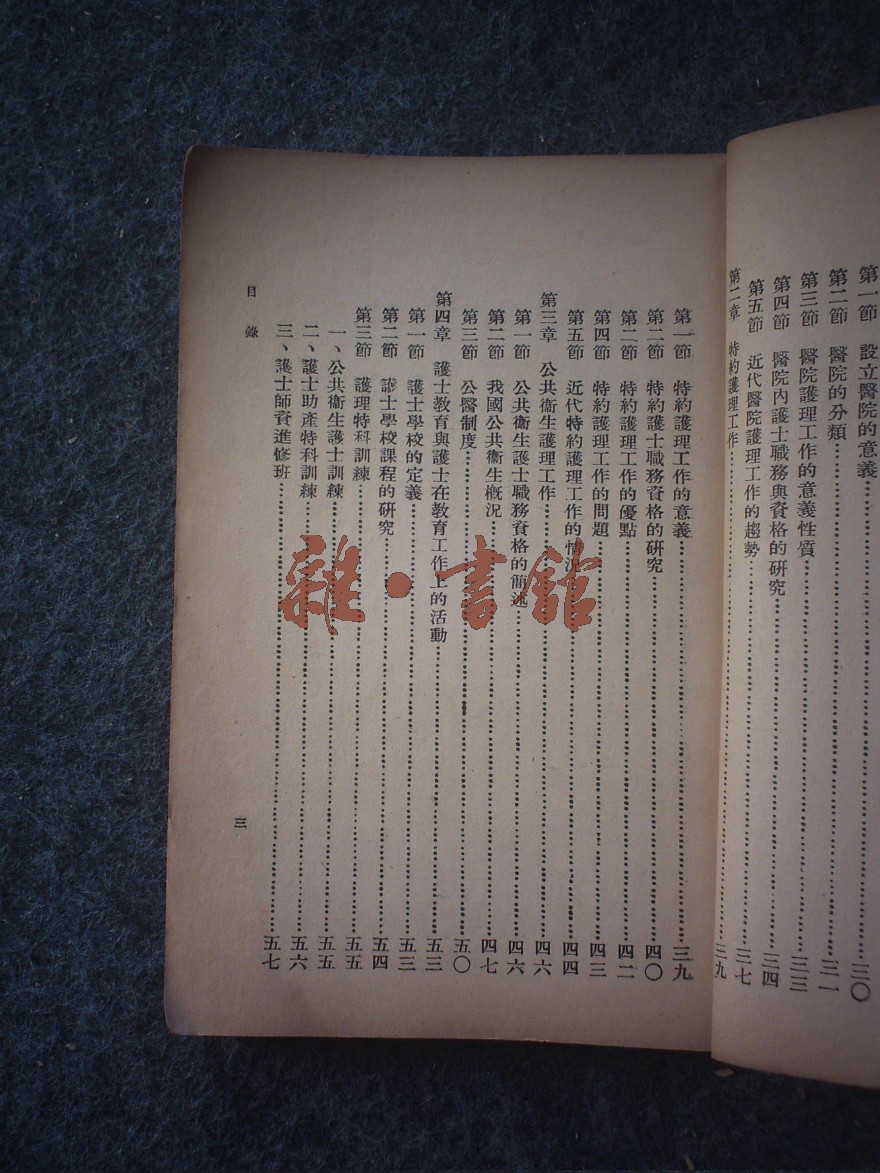 第一節 設立醫院的意義……三〇
第二節 醫院的分類……三一
第三節 醫院護理工作的意義性質……三三
第四節 醫院內護士職務與資格的研究……三四
第五節 近代醫院護理工作的趨勢……三七
第二章 特約護理工作……三九
第一節 特約護理工作的意義……三九
第二節 特約護士職務資格的研究……四〇
第二節 特約護理工作的優點……四二
第四節 特約護理工作的問題……四三
第五節 近代特約護理工作的情況……四四
第三章 公共衞生護理工作……四六
第一節 公共衞生護士職務資格的簡述……四六
第二節 我國公共衞生概況……四七
第三節 公醫制度……五〇
第四章 護士教育與護士在教育工作上的活動……五三
第一節 護士學校的定義……五三
第二節 護士學校課程的研究……五四
第三節 護理特科訓練……五五
一、公共衞生護士訓練……五五
二、護士助產特科訓練……五六
三、護士師資進修班……五七
目錄
三
雜·書館